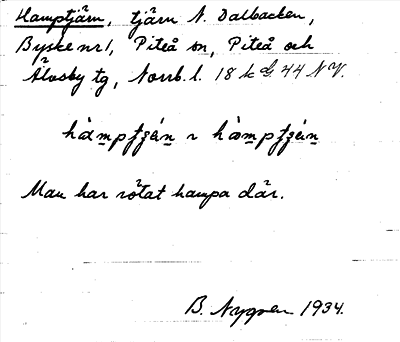 Hamptjärn, tjärn N. Dalbacken,
Byske nr 1, Piteå sn, Piteå och
Älvsby tg, Norrb. l. 18 k d 44 NV.
Man har rötat hampa där.
B. Nygren 1934.